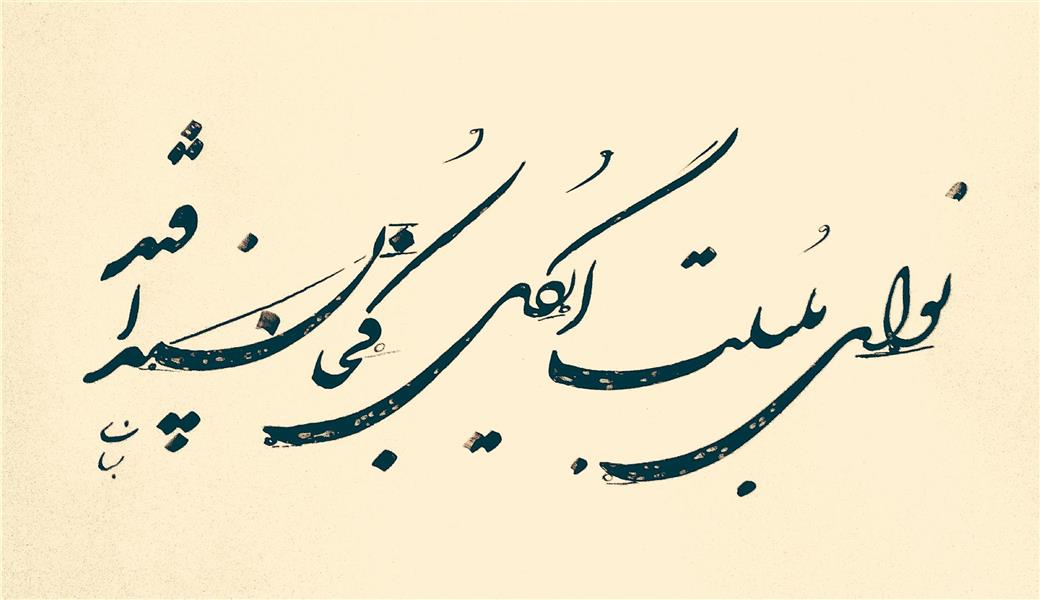 نوای بلبلت ای گل کجا پسند افتد